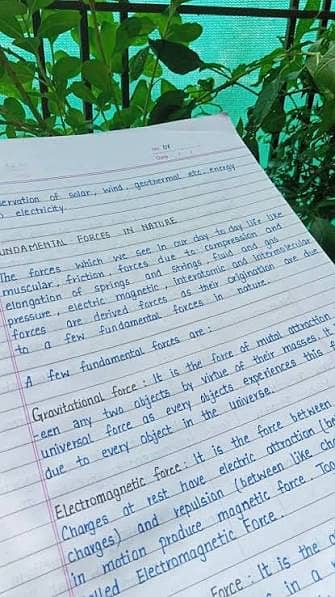 No. 04
Date
servation of solar, wind, geothermal etc. energy
o electricity.
UNDAMENTAL FORCES IN NATURE
The forces which we see in our day to day life like
muscular, friction, forces due to compression and
elongation of springs and strings, fluid and gas
pressure, electric magnetic, interatomic and intermolecular
forces are derived forces as their origination are due
to a few fundamental forces in nature.
A few fundamental forces are :
Gravitational force : It is the force of mutal attraction
-een any two objects by virtue of their masses.
universal force as every objects experiences this
due to every object in the universe.
Electromagnetic force : It is the force between
Charges at rest have electric attraction (be
charges) and repulsion (between like cha
in motion produce magnetic force. Tog
lled Electromagnetic Force.
Force : It is the a
s in a